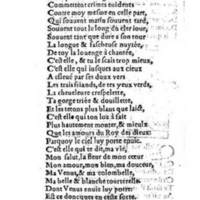 Commettre crimes euidents
Contre moy mesme en celle part,
Qui souuent matin souuent tard,
Souuent tout le long du cler iour,
Souuent tant que dure à son tour
La longue & fascheuse nuytée,
De toy la louenge à chantée,
C'est elle, & tu le scais trop mieux,
C'est elle qui iusques aux cieux
A esleué par ses doux vers
Les traits friands, de tes yeux verds,
La cheuelure crespelette,
Ta gorge traitte & douillette,
Et ton tetin plus blanc que laict,
C'est elle qui ton loz à faict
Plus hautement monter, & mieux
Que les amours du Roy des dieux:
Parquoy le ciel luy porte enuie.
C'est elle qui te dit, ma vie,
Mon salut, la fleur de mon cœur
Mon amour, mon bien, ma douceur,
Ma Venus, & ma colombelle,
Ma belle & blanche tourterelle.
Dont Venus toute luy porte
Est